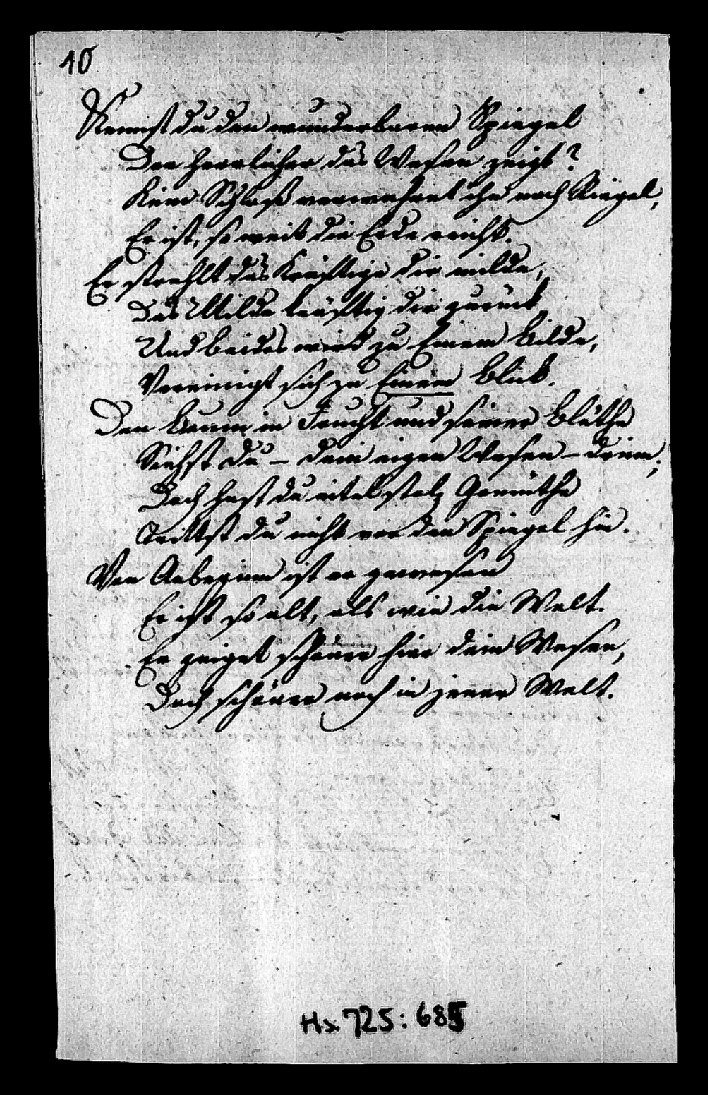 10
Kennst du den wunderbaren Spiegel
Der herrlicher das Wesen zeigt?
Kein Schloß verwahret ihn noch Riegel,
Er ist, so weit die Erde reicht.
Er strahlt das Kräftige dir milde,
Das Milde kräftig dir zurück
Und beides wird zu Einem Bilde,
Vereinigt sich zu Einem Blick.
Den Baum in Frucht und seiner Blüthe
Siehst du – dein eigen Wesen – drinn;
Doch hast du eitel stolz Gemüthe
Trittst du nicht vor den Spiegel hin.
Von Anbeginn ist er gewesen
Er ist so alt, als wie die Welt.
Er zeiget schöner hier dein Wesen,
Doch schöner noch in jener Welt.
Hs. 725: 685